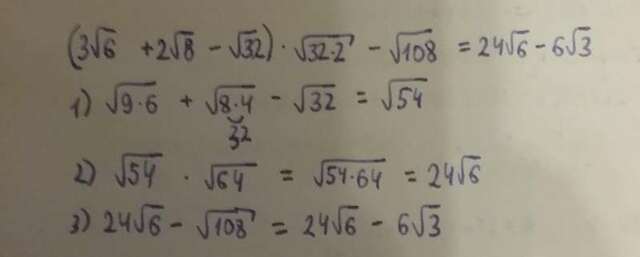 (3√6 + 2√8 - √32) · √32·2 - √108 = 24√6 - 6√3
1) √9·6 + √8·4 - √32 = √54
32
2) √54 · √64 = √54·64 = 24√6
3) 24√6 - √108 = 24√6 - 6√3